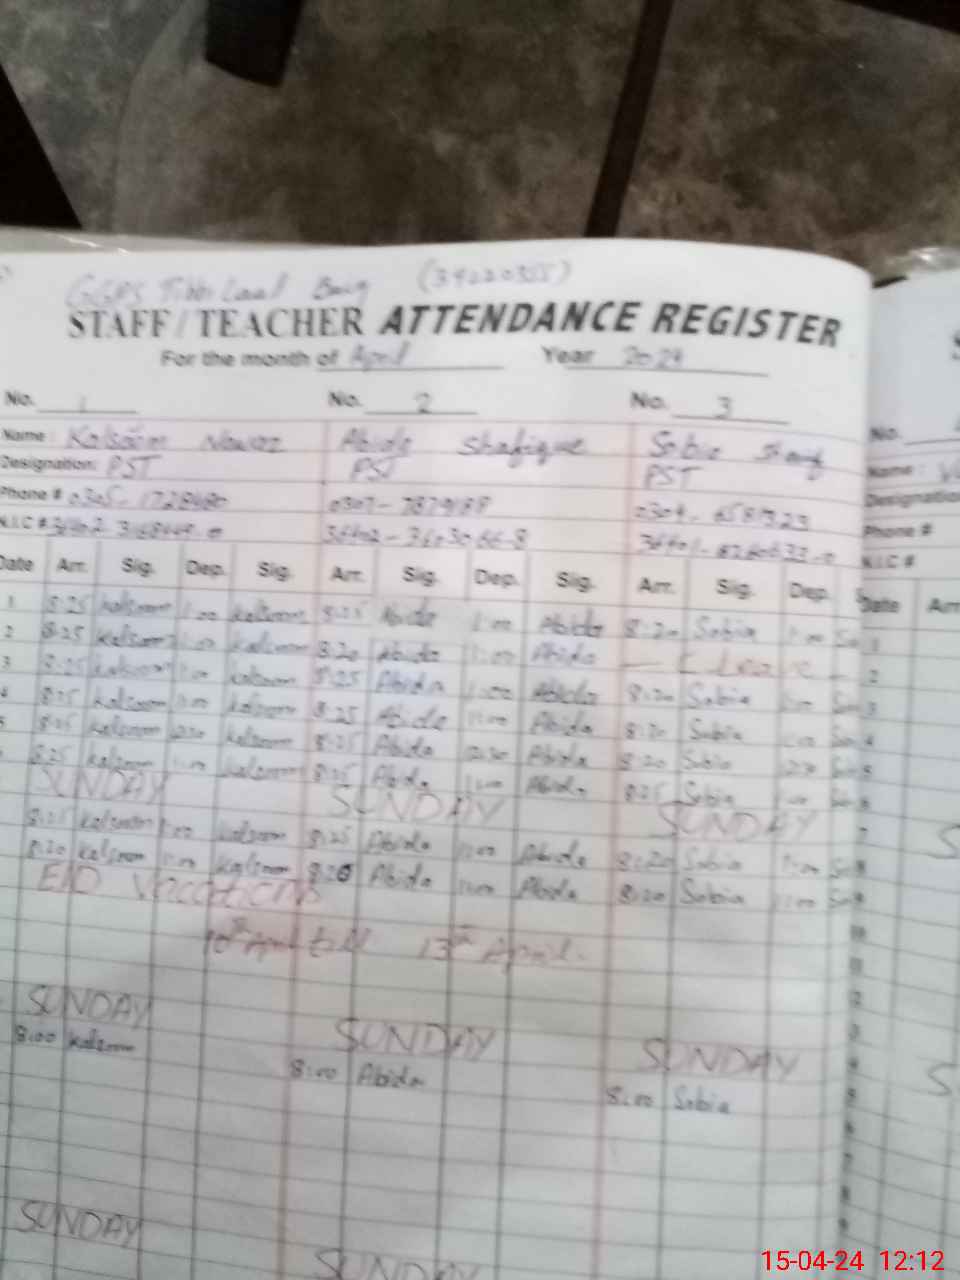 GGPS Tibbi Laal Baig
STAFF/TEACHER ATTENDANCE REGISTER
For the month of April Year 2024
No. 1 No. 2 No. 3 No.
Name: Kalsoom Nawaz Abida Shafique Sobia Name:
Designation: PST PST PST Designation
Phone # 0307- 0304- Phone #
N.I.C # N.I.C #
Date Arr. Sig. Dep. Sig. Arr. Sig. Dep. Sig. Arr. Sig. Dep. Date Arr
1 8:25 Kalsoom 1:00 Kalsoom 8:25 Abida 1:00 Abida 8:20 Sobia 1:00 1
2 8:25 Kalsoom 1:00 Kalsoom 8:20 Abida 1:00 Abida Leave 2
3 8:25 Kalsoom 1:00 Kalsoom 8:25 Abida 1:00 Abida 8:20 Sobia 1:00 3
4 8:25 Kalsoom 1:00 Kalsoom 8:25 Abida 1:00 Abida 8:20 Sobia 1:00 4
5 8:25 Kalsoom 12:30 Kalsoom 8:25 Abida 12:30 Abida 8:20 Sobia 12:30 5
8:25 Kalsoom 1:00 Kalsoom 8:25 Abida 1:00 Abida 8:25 Sobia 1:00 6
SUNDAY SUNDAY SUNDAY 7
8:25 Kalsoom 1:00 Kalsoom 8:25 Abida 1:00 Abida 8:20 Sobia 1:00 8
8:20 Kalsoom 1:00 Kalsoom 8:20 Abida 1:00 Abida 8:20 Sobia 1:00 9
EID Vacations
10th April till 13th April.
SUNDAY SUNDAY SUNDAY
8:00 Kalsoom 8:00 Abida 8:00 Sobia
SUNDAY SUNDAY
15-04-24 12:12